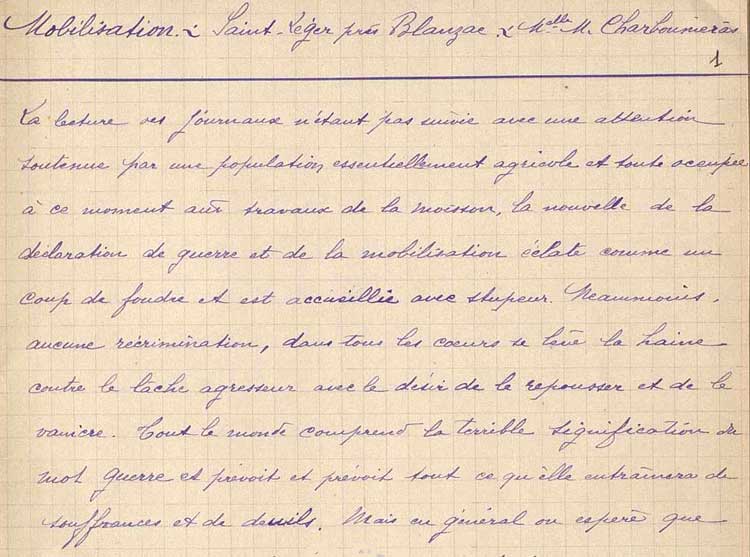 Mobilisation. Saint-Léger près Blanzac. Melle M. Charbounieras
1
La lecture des journaux n'étant pas suivie avec une attention
soutenue par une population essentiellement agricole et toute occupée
à ce moment aux travaux de la moisson, la nouvelle de la
déclaration de guerre et de la mobilisation éclate comme un
coup de foudre et est accueillie avec stupeur. Neammoins,
aucune récrimination, dans tous les cœurs se lève la haine
contre le lâche agresseur avec le désir de le repousser et de le
vaincre. Tout le monde comprend la terrible signification du
mot guerre et prévoit et prévoit tout ce qu'elle entraînera de
souffrances et de deuils. Mais en général on espère que